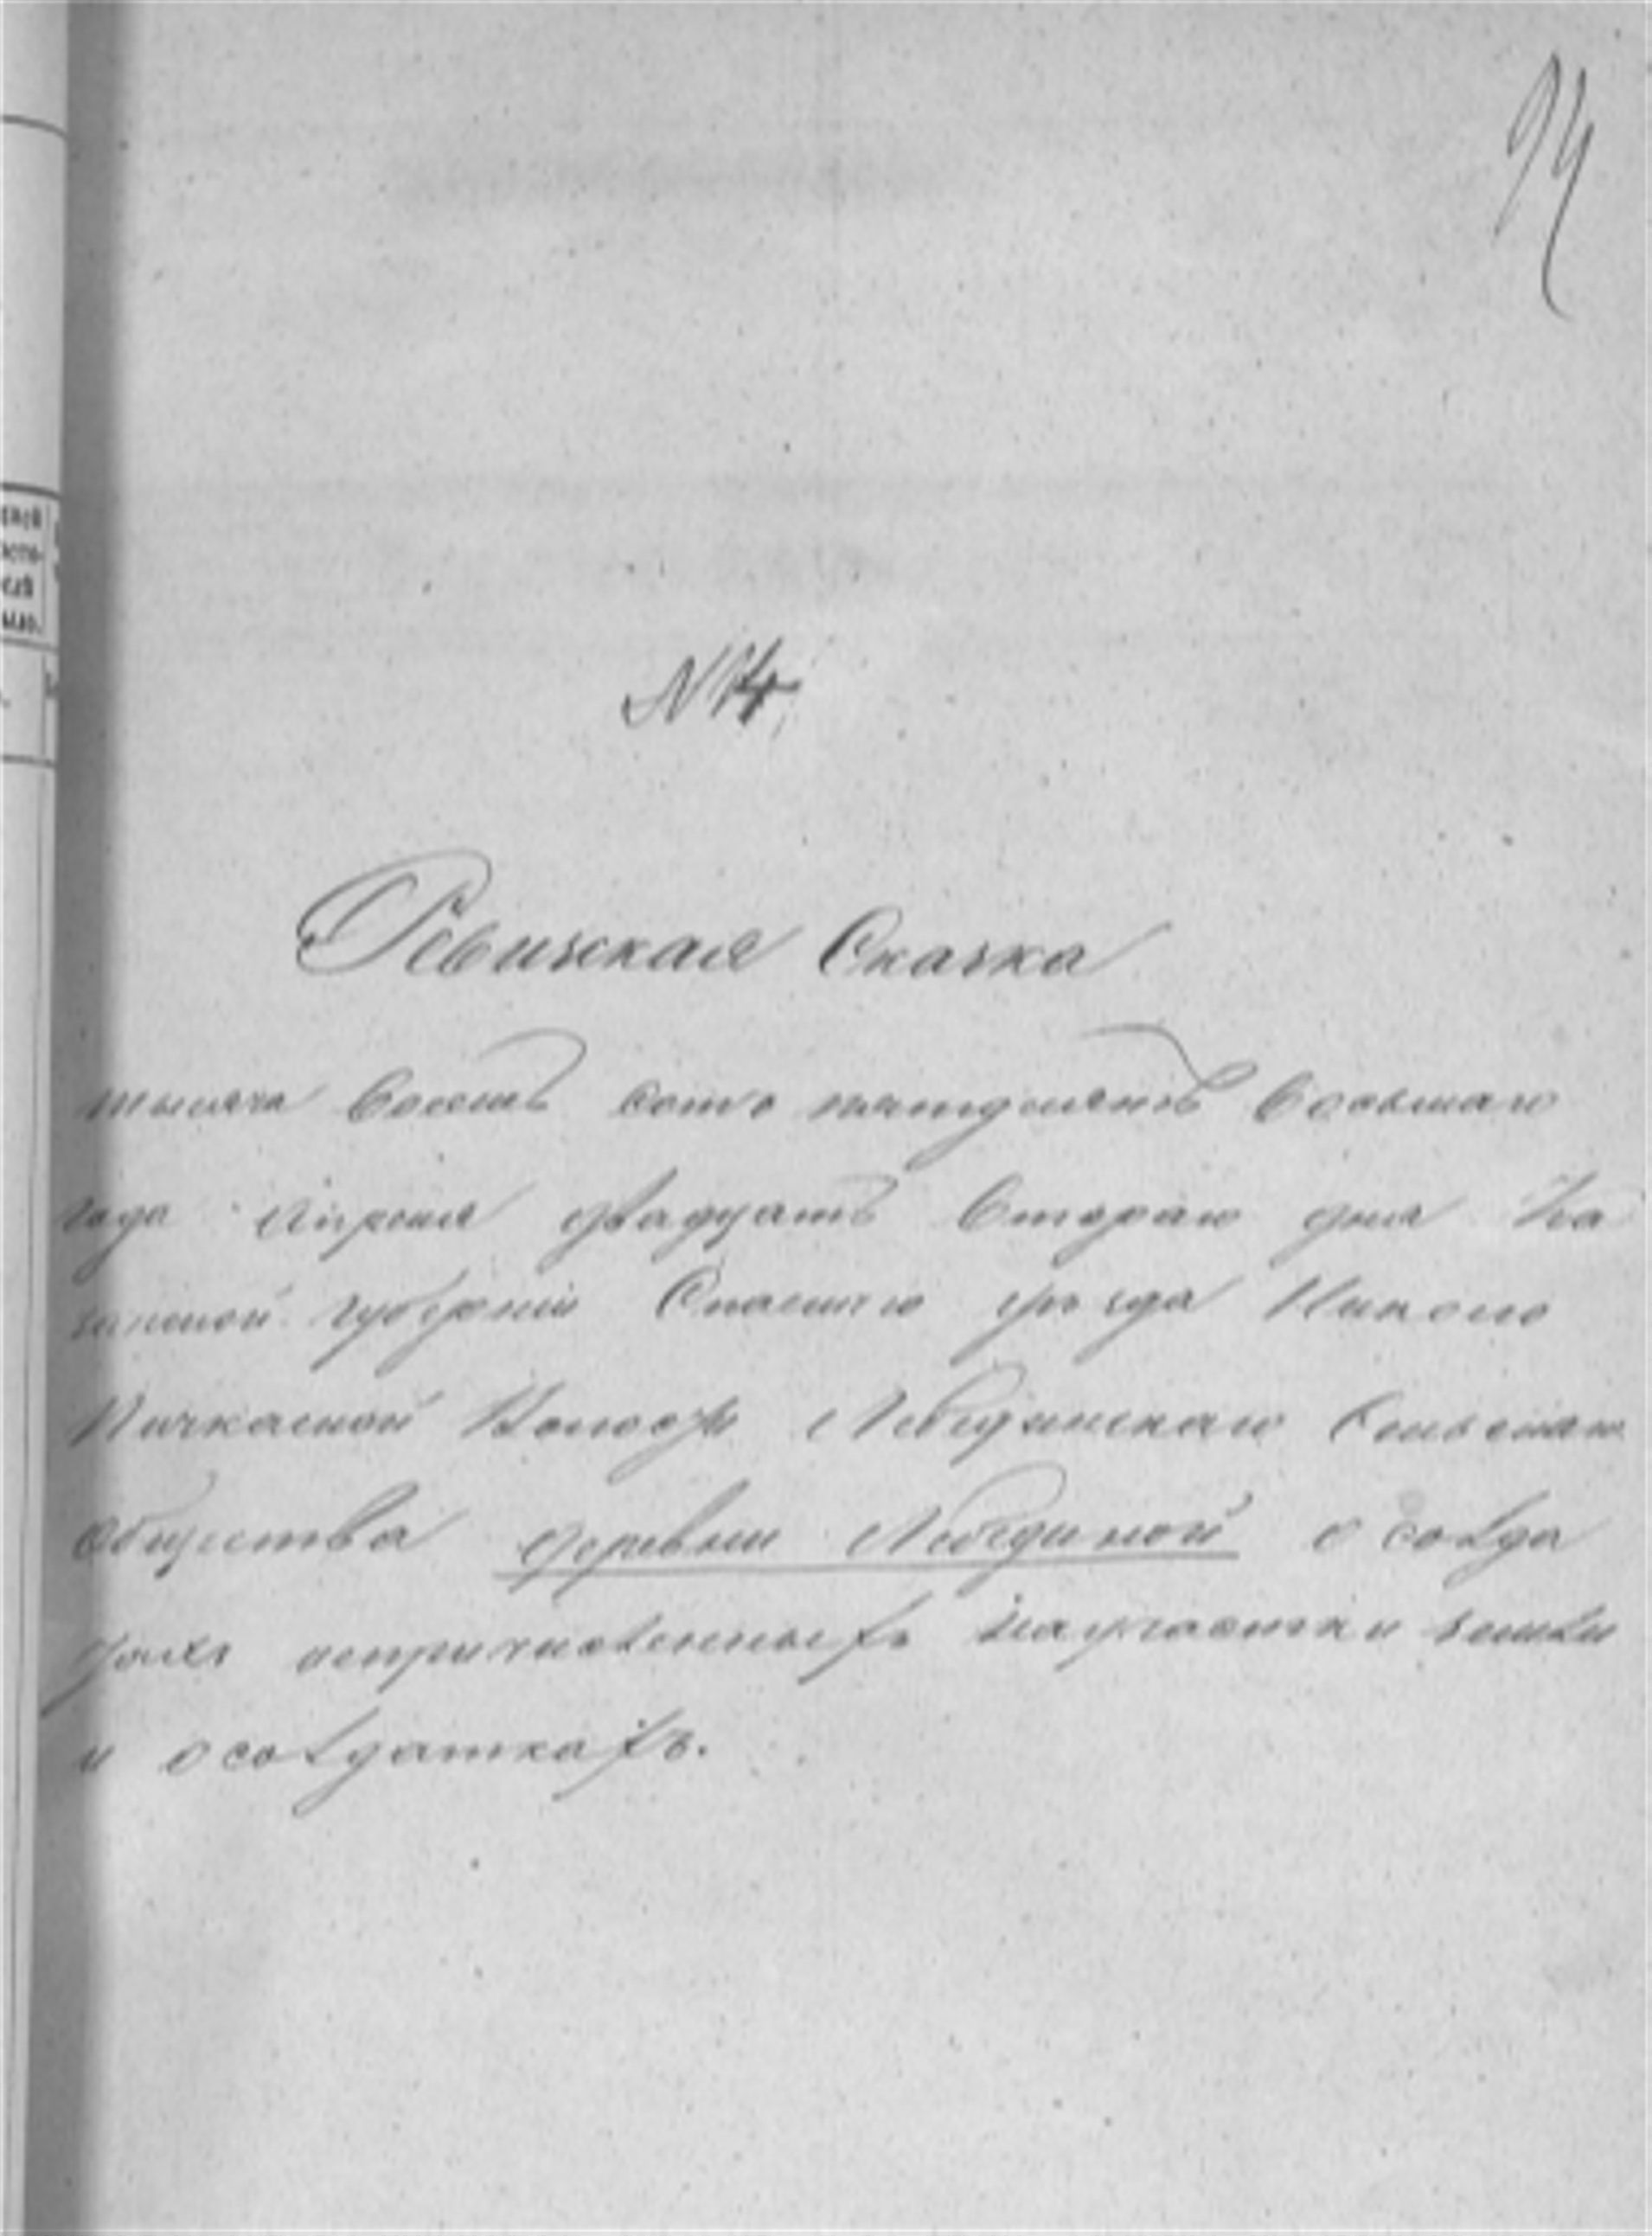 94
№ 14
Ревизская Сказка
тысяча восемь сотъ пятдесятъ восьмаго
года Апреля двадцать втораго дня Ка
занской губерніи Спаскаго уѣзда Николо
Пичкаской Волости Лебединскаго Сельскаго
Общества деревни Лебединой о солда
тахъ непричисленныхъ на участки земли
и о солдаткахъ.